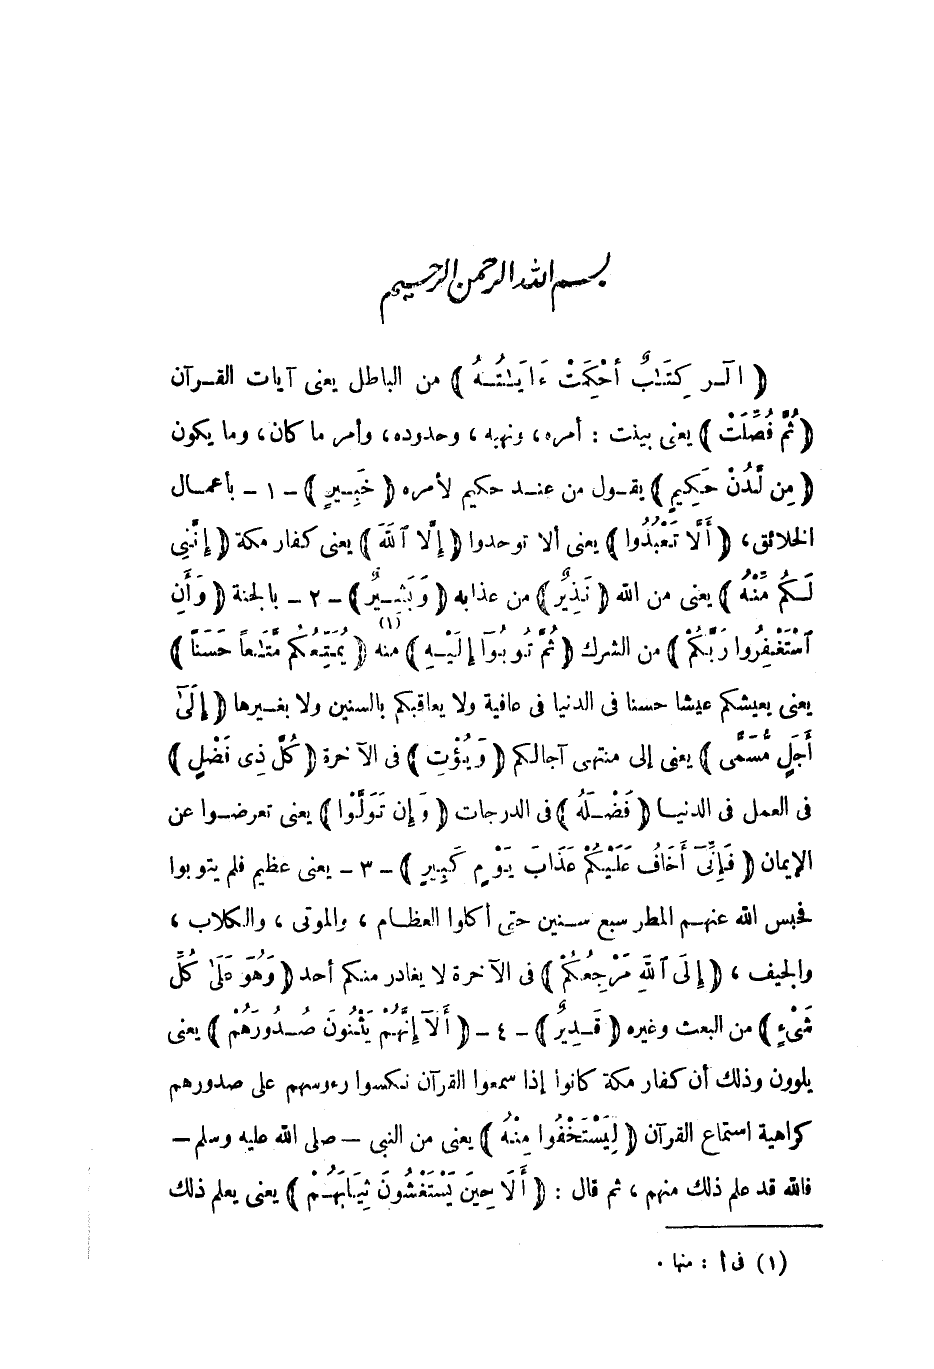 بسم الله الرحمن الرحيم
﴿ الٓـر كِتَـٰبٌ أُحْكِمَتْ ءَايَـٰتُـهُ ﴾ من الباطل يعنى آيات القـرآن
﴿ ثُمَّ فُصِّلَتْ ﴾ يعنى بينت : أمره، ونهيه ، وحدوده، وأمر ما كان، وما يكون
﴿ مِن لَّدُنْ حَكِيمٍ ﴾ يقـول من عنـد حكيم لأمره ﴿ خَبِـيرٍ ﴾ - ١ - بأعمـال
الخلائق، ﴿ أَلَّا تَعْبُدُوا ﴾ يعنى ألا توحدوا ﴿ إِلَّا ٱللَّهَ ﴾ يعنى كفار مكة ﴿ إِنَّنِى
لَـكُم مِّنْهُ ﴾ يعنى من الله ﴿ نَـذِيرٌ ﴾ من عذابه ﴿ وَبَشِـيرٌ ﴾ - ٢ - بالجنة ﴿ وَأَنِ
ٱسْتَغْـفِرُوا رَبَّكُمْ ﴾ من الشرك ﴿ ثُمَّ تُوبُوٓا إِلَيْـهِ ﴾ منه (١) ﴿ يُمَتِّعْكُم مَّتَـٰعاً حَسَناً ﴾
يعنى يعيشكم عيشا حسنا فى الدنيا فى عافية ولا يعاقبكم بالسنين ولا بغـيرها ﴿ إِلَىٰٓ
أَجَلٍ مُّسَمًّى ﴾ يعنى إلى منتهى آجالكم ﴿ وَيُؤْتِ ﴾ فى الآخرة ﴿ كُلَّ ذِى فَضْلٍ ﴾
فى العمل فى الدنيـا ﴿ فَضْـلَهُ ﴾ فى الدرجات ﴿ وَإِن تَوَلَّوْا ﴾ يعنى تعرضـوا عن
الإيمان ﴿ فَإِنِّىٓ أَخَافُ عَلَيْكُمْ عَذَابَ يَوْمٍ كَبِيرٍ ﴾ - ٣ - يعنى عظيم فلم يتوبوا
فحبس الله عنهـم المطر سبع سـنين حتى أكلوا العظـام ، والموتى ، والـكلاب ،
والجيف ، ﴿ إِلَى ٱللَّهِ مَرْجِعُكُمْ ﴾ فى الآخرة لا يغادر منكم أحد ﴿ وَهُوَ عَلَىٰ كُلِّ
شَىْءٍ ﴾ من البعث وغيره ﴿ قَـدِيرٌ ﴾ - ٤ - ﴿ أَلَآ إِنَّهُمْ يَثْنُونَ صُـدُورَهُمْ ﴾ يعنى
يلوون وذلك أن كفار مكة كانوا إذا سمعوا القرآن نـكسوا رءوسهم على صدورهم
كراهية استماع القرآن ﴿ لِيَسْتَخْفُوا مِنْـهُ ﴾ يعنى من النبى – صلى الله عليه وسلم –
فالله قد علم ذلك منهم ، ثم قال : ﴿ أَلَا حِينَ يَسْتَغْشُونَ ثِيَـابَهُـمْ ﴾ يعنى يعلم ذلك
(١) فى أ : منها .